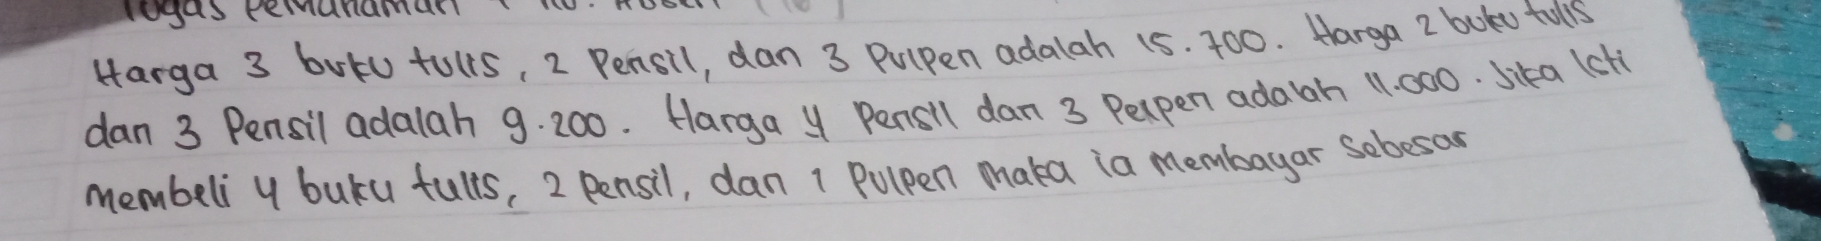 Tugas Pemahaman
Harga 3 buku tulis, 2 Pensil, dan 3 Pulpen adalah 15.700. Harga 2 buku tulis
dan 3 Pensil adalah 9.200. Harga 4 Pensil dan 3 Pelpen adalah 11.000. Jika Isti
membeli 4 buku tulis, 2 Pensil, dan 1 Pulpen maka ia membayar sebesar